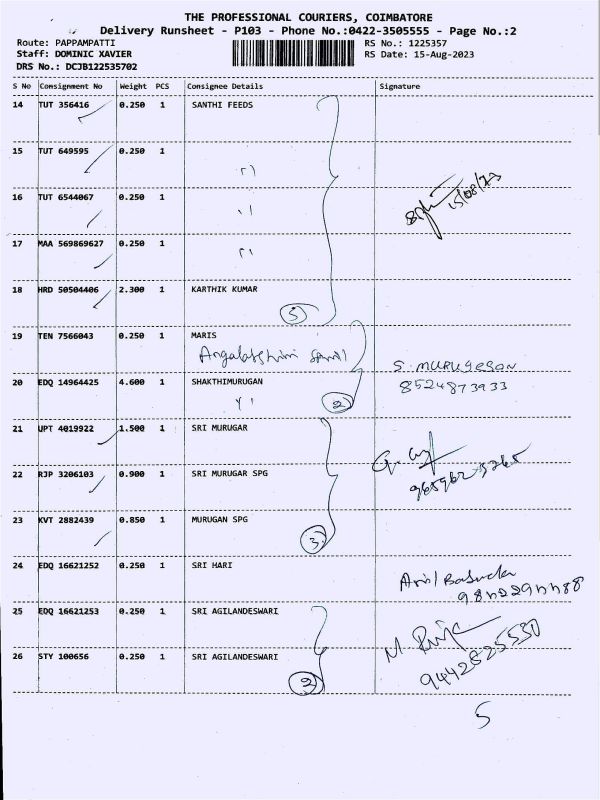 THE PROFESSIONAL COURIERS, COIMBATORE
Delivery Runsheet - P103 - Phone No.:0422-3505555 - Page No.:2
Route: PAPPAMPATTI RS No.: 1225357
Staff: DOMINIC XAVIER RS Date: 15-Aug-2023
DRS No.: DCJB122535702
S No Consignment No Weight PCS Consignee Details Signature
14 TUT 356416 0.250 1 SANTHI FEEDS
15 TUT 649595 0.250 1
16 TUT 6544067 0.250 1
15/08/23
17 MAA 569869627 0.250 1
18 HRD 50504406 2.300 1 KARTHIK KUMAR
5
19 TEN 7566043 0.250 1 MARIS
S. MURUGESAN
20 EDQ 14964425 4.600 1 SHAKTHIMURUGAN
8524873933
2
21 UPT 4019922 1.500 1 SRI MURUGAR
22 RJP 3206103 0.900 1 SRI MURUGAR SPG
23 KVT 2882439 0.850 1 MURUGAN SPG
3
24 EDQ 16621252 0.250 1 SRI HARI
25 EDQ 16621253 0.250 1 SRI AGILANDESWARI
26 STY 100656 0.250 1 SRI AGILANDESWARI
9442825530
2
5